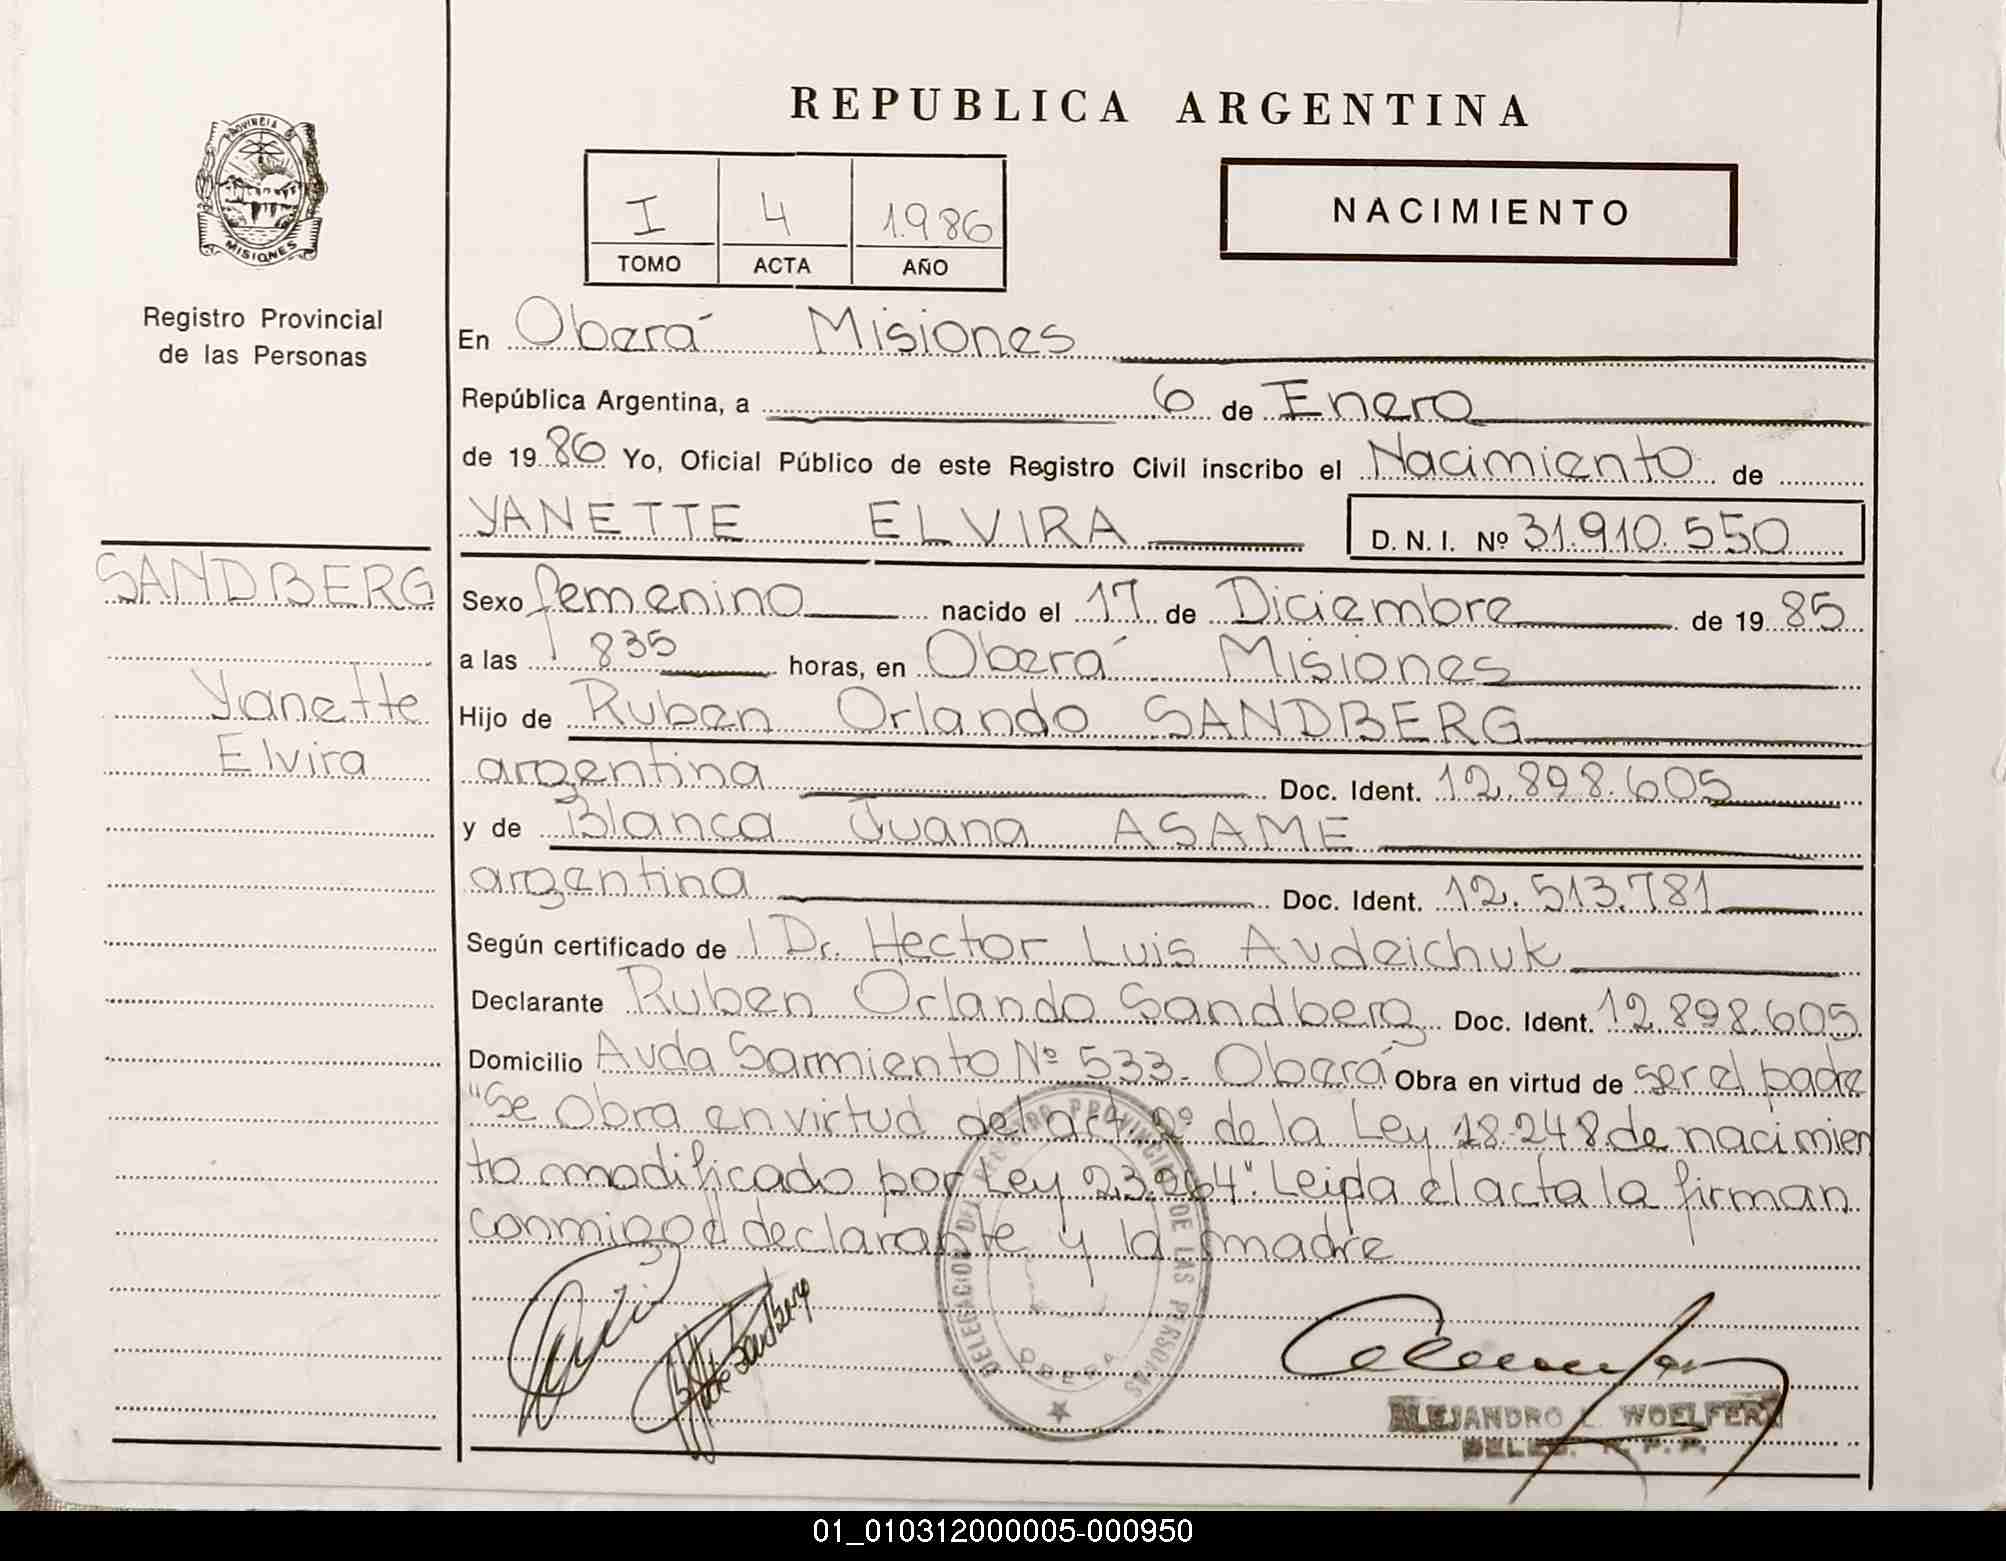 REPUBLICA ARGENTINA
PROVINCIA DE MISIONES
I 4 1.986
TOMO ACTA AÑO
NACIMIENTO
Registro Provincial
de las Personas
En Oberá Misiones
República Argentina, a 6 de Enero
de 1986 Yo, Oficial Público de este Registro Civil inscribo el Nacimiento de
YANETTE ELVIRA D. N. I. Nº 31.910.550
SANDBERG
Yanette
Elvira
Sexo femenino nacido el 17 de Diciembre de 1985
a las 835 horas, en Oberá Misiones
Hijo de Ruben Orlando SANDBERG
argentina Doc. Ident. 12.898.605
y de Blanca Juana ASAME
argentina Doc. Ident. 12.513.781
Según certificado de l Dr. Hector Luis Audeichuk
Declarante Ruben Orlando Sandberg Doc. Ident. 12.898.605
Domicilio Avda Sarmiento Nº 533. Oberá Obra en virtud de ser el padre
"Se obra en virtud del art. 2º de la Ley 18.248 de nacimien
to modificado por Ley 23.264". Leida el acta la firman
conmigo el declarante y la madre
DELEGACION DEL REGISTRO PROVINCIAL DE LAS PERSONAS
OBERA
ALEJANDRO L. WOELFERT
DELEG. R. P. P.
01_010312000005-000950